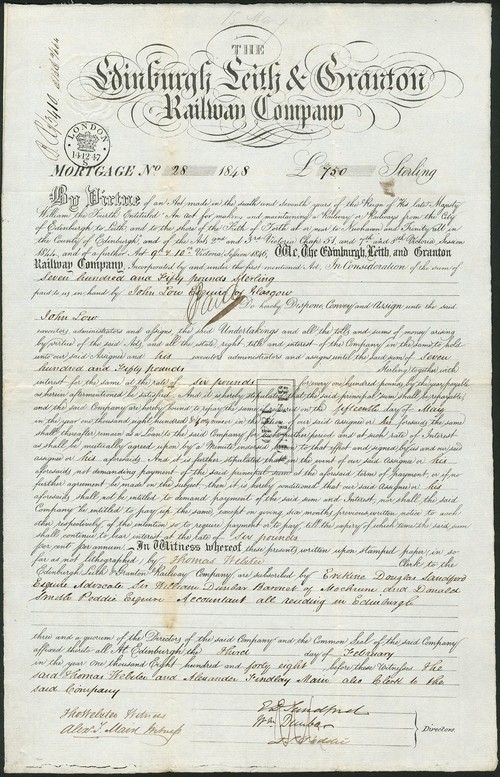 THE
Edinburgh Leith & Granton
Railway Company
LONDON
14.12.47
S
MORTGAGE No 28 1848 £ 750 Sterling
By Virtue of an Act made in the sixth and seventh years of the Reign of His late Majesty
William the Fourth Entitled An Act for making and maintaining a Railway or Railways from the City
of Edinburgh to Leith and to the shore of the Firth of Forth at or near to Newhaven and Trinity All in
the County of Edinburgh, and of the Acts 2nd and 3rd Victoria Chap. 51, and 7th and 8th Victoria Session
1844, and of a further Act 9th & 10th Victoria, Session 1846, We, The Edinburgh, Leith, and Granton
Railway Company, Incorporated by and under the first mentioned Act, In Consideration of the sum of
Seven hundred and Fifty pounds Sterling
paid to us in hand by John Low Esquire Glasgow
Do hereby Dispone, Convey and Assign unto the said
John Low
executors administrators and assigns the said Undertakings and all the tolls and sums of money arising
by virtue of the said Acts, and all the estate, right title and interest of the Company in the same, to hold
unto our said Assignee and his executors administrators and assigns until the said sum of Seven
hundred and Fifty pounds Sterling together with
interest for the same at the rate of six pounds for every one hundred pounds by the year payable
as herein aftermentioned be satisfied. And it is hereby stipulated that the said principal sum shall be repayable;
and the said Company are hereby bound to repay the same on the fifteenth day of May
in the year one thousand eight hundred & our said assignee or his foresaids, the same
shall thereafter remain as a Loan to the said Company for period and at such rate of Interest
as shall be mutually agreed upon by a Minute to that effect and signed by us and our said
assignee or his aforesaids. And it is further stipulated that in the event of our said Assignee or his
aforesaids not demanding payment of the said principal sum at the aforesaid term of payment, or if no
further agreement be made on the subject, then it is hereby conditioned that our said Assignee or his
aforesaids shall not be entitled to demand payment of the said sum and Interest, nor shall the said
Company be entitled to pay up the same, except on giving six months previous written notice to each
other respectively of the intention so to require payment or to pay, till the expiry of which time the said sum
shall continue to bear interest at the rate of Six pounds
per cent. per annum. In Witness whereof these presents written upon stamped paper, in so
far as not lithographed, by Thomas Webster Clerk to the
Edinburgh Leith & Granton Railway Company, are subscribed by Erskine Douglas Sandford
Esquire Advocate Sir William Dunbar Baronet of Mochrum and Donald
Smith Peddie Esquire Accountant all residing in Edinburgh
three and a quorum of the Directors of the said Company and the Common Seal of the said Company
affixed thereto all At Edinburgh the Third day of February
in the year one thousand Eight hundred and forty eight before these Witnesses the
said Thomas Webster and Alexander Findlay Mair also Clerk to the
said Company
Tho Webster Witness
Alexr F. Maird Witness
E D Sandford
Wm Dunbar
D S Peddie
Directors